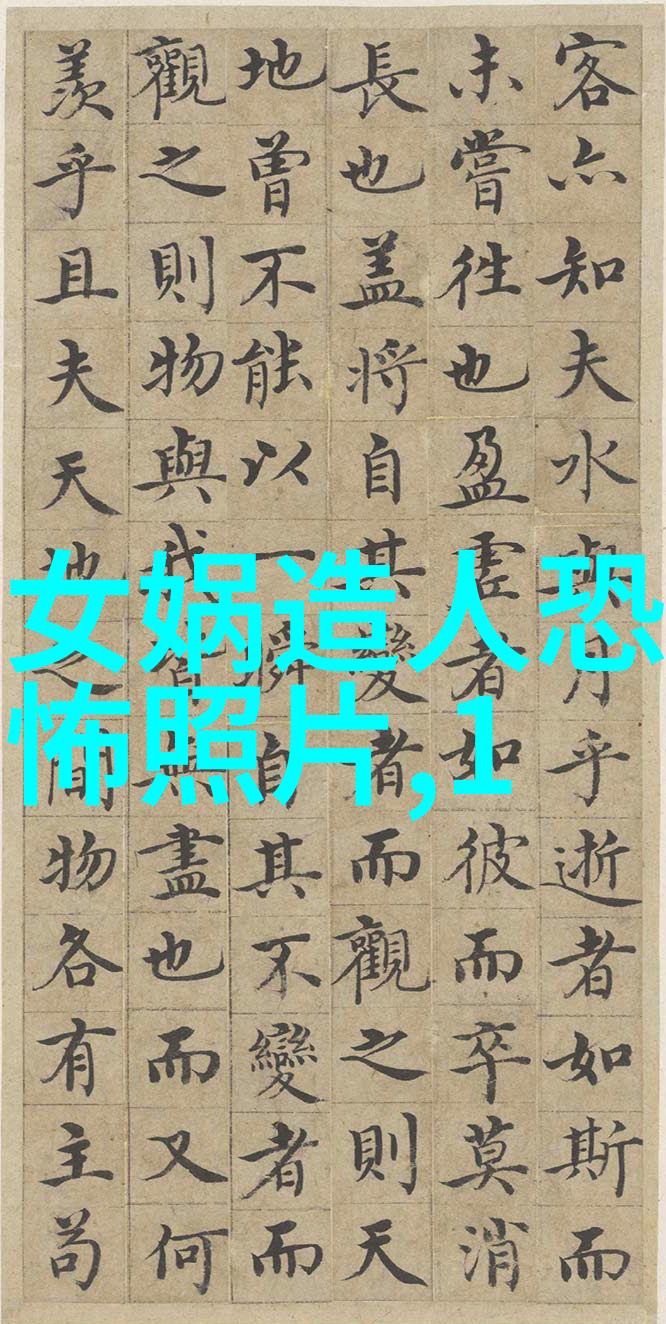 客亦知夫水與月乎逝者如斯而
未嘗往也盈虛者如彼而卒莫消
長也盖將自其變者而觀之則天
地曾不能以一瞬自其不變者而
觀之則物與我皆無盡也而又何
羨乎且夫天地之間物各有主苟
女娲造人恐
怖照片,1